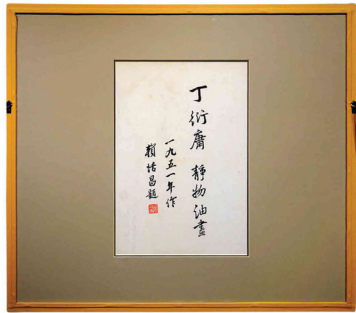 丁衍庸 靜物油畫
一九五一年作
賴恬昌題